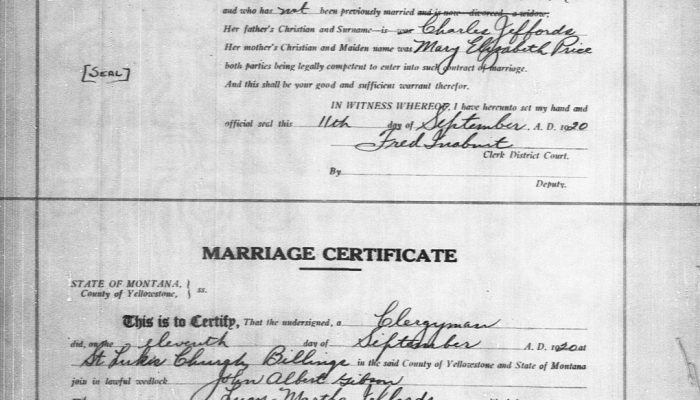 and who has not been previously married and is now divorced a widow;
Her father's Christian and Surname is was Charles Jeffords
Her mother's Christian and Maiden name was Mary Elizabeth Price
both parties being legally competent to enter into such contract of marriage.
[SEAL]
And this shall be your good and sufficient warrant therefor.
IN WITNESS WHEREOF, I have hereunto set my hand and
official seal this 11th day of September, A. D. 1920
Fred Inabnit
Clerk District Court.
By
Deputy.
MARRIAGE CERTIFICATE
STATE OF MONTANA, } ss.
County of Yellowstone, }
This is to Certify, That the undersigned, a Clergyman
did, on the eleventh day of September A. D. 1920 at
St Lukes Church, Billings in the said County of Yellowstone and State of Montana
join in lawful wedlock John Albert Gibson
Martha Jeffords